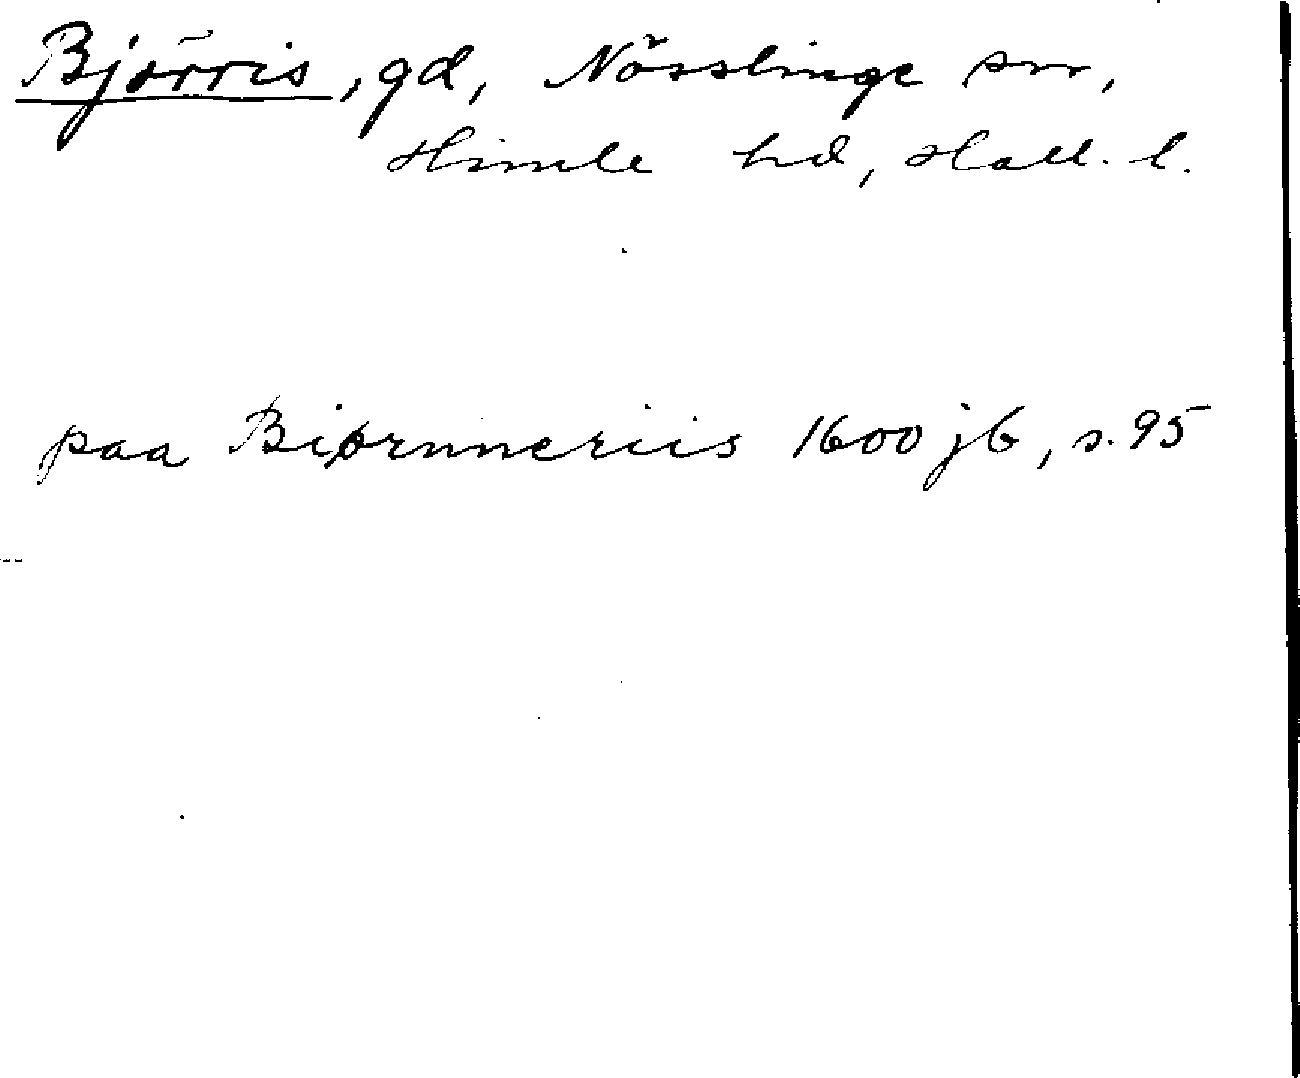 Björris, gd, Nösslinge sn,
Himle hd, Hall. l.
paa Biørnneriis 1600 jb, s. 95